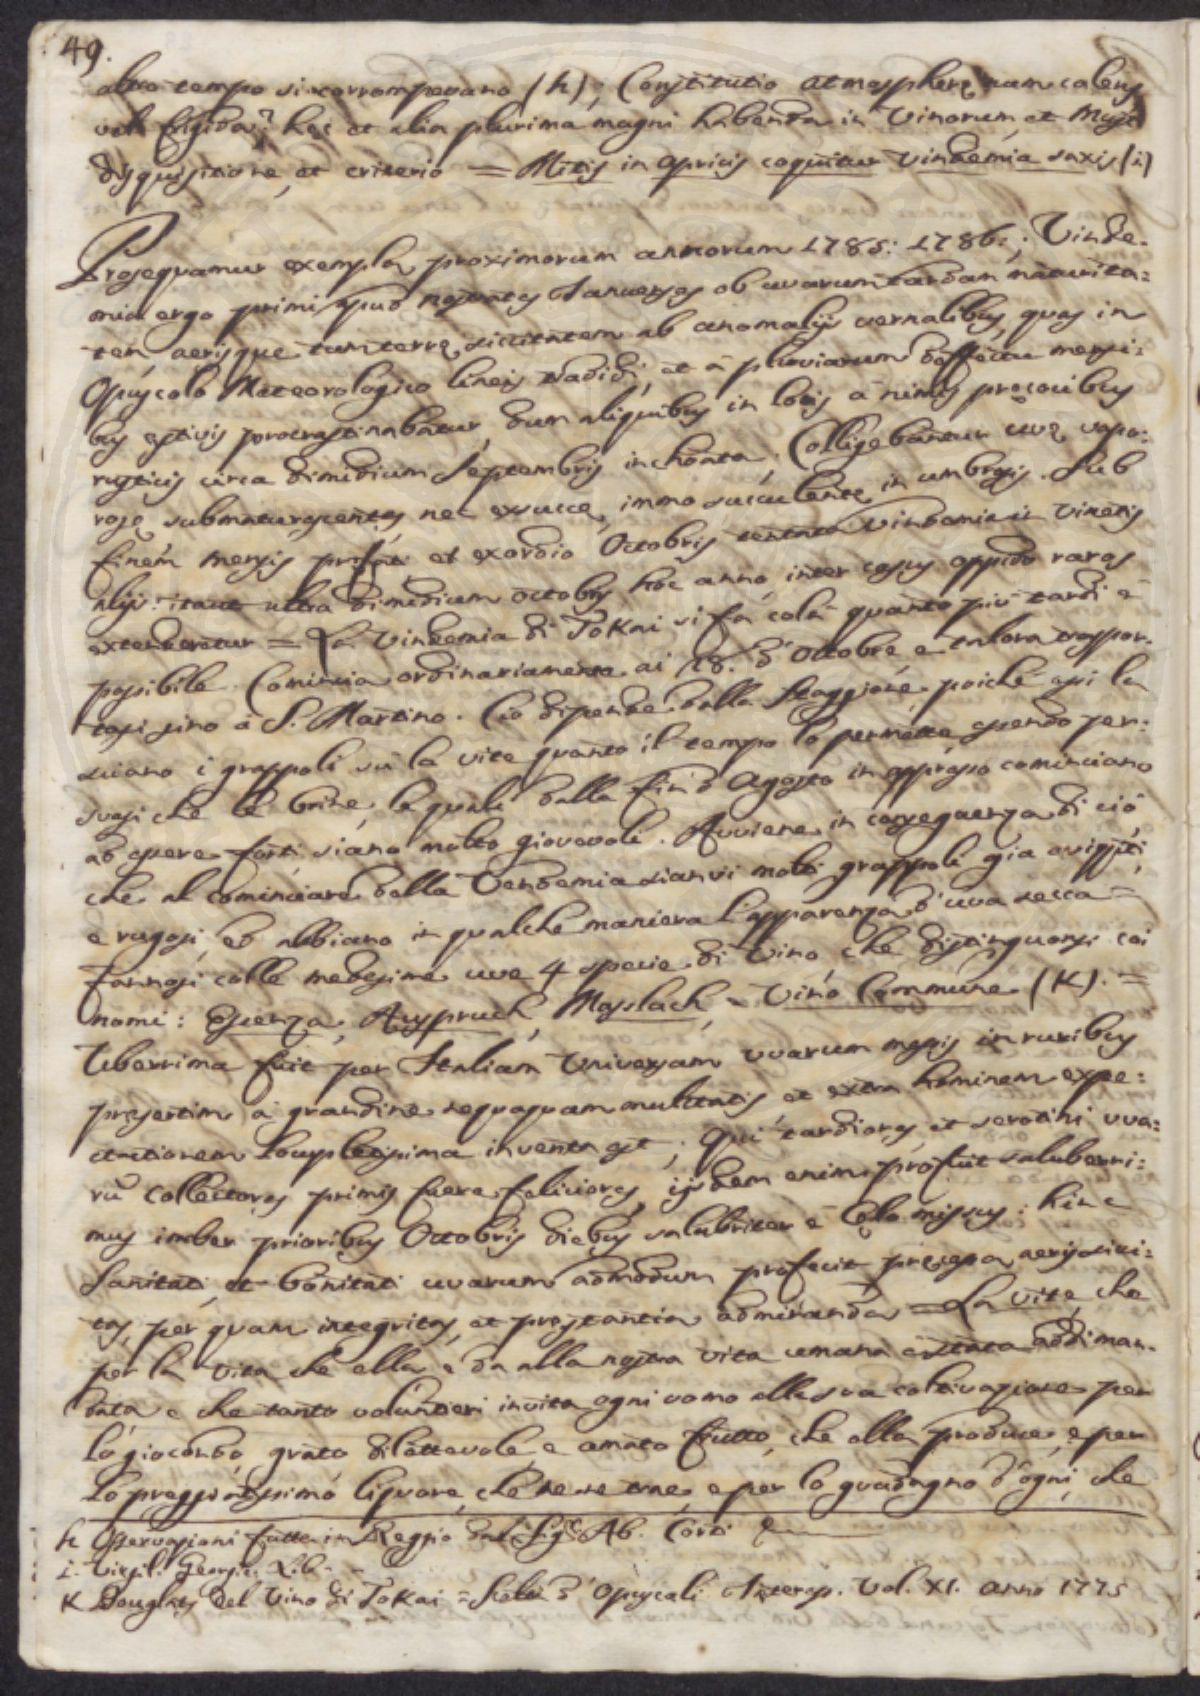 49.
altro tempo si corrompevano (h); Constitutio atmospherę nam calens
vel frigida? hęc et alia plurima magni habenda in Vinorum, et Musti
disquisitione, et criterio = Mitis in apricis coquitur vindemia saxis (i)
Prosequamur exempla proximorum annorum 1785: 1786:; Vinde-
mia ergo primi apud nostrates Januenses ob uvarum tardam maturita=
tem, aerisque tum terrę siccitatem ab anomalijs vernalibus, quas in
Opuscolo Meteorologico lineis tradidi, et à pluviarum deffectu mensi=
bus estivis procrastinabatur, dum aliquibus in locis à nimis precocibus
rusticis circa dimidium Septembris inchoata. Colligebantur uvę vapo=
rosę submaturescentes nec exsuccę, immo succulentę in umbrosis. Sub
finem mensis prefati et exordio Octobris tentata Vindemia in Vinetis
alijs: itaut ultra dimidium octobris hoc anno, inter casus oppido raros
extenderetur = La Vindemia di Tokai si fa colà quanto più tardi è
possibile. Comincia ordinariamente ai 28. d'Octobre e talora traspor-
tasi sino à S. Martino. Ciò dipende dalla Staggione, poiché essi la
sciano i grappoli su la vite quanto il tempo lo permette, essendo per=
suasi che le brine, le quali dalla fin d'Agosto in appresso cominciano
ad essere forti, siano molto giovevoli. Avviene in conseguenza di ciò
che al cominciare della Vendemia sianvi molti grappoli gia avizziti,
e rugosi, ed abbiano in qualche maniera l'apparenza d'uva secca =
Fannosi colle medesime uve 4 specie di Vino, che distinguonsi coi
nomi: Essenza, Auspruch, Masslach, e Vino Commune (K). =
Uberrima fuit per Italiam Universam uvarum messis in ruribus
presertim à grandine nequaquam mulctatis, et extra hominem expe=
ctationem locupletissima inventa est; Qui tardiores, et serotini uva=
rũ collectores primis fuere feliciores, ijsdem enim profuit saluberri=
mus imber prioribus Octobris diebus salubriter è Cęlo missus: hinc
Sanitati, et bonitati uvarum admodum profecit pręcessa aeris sicci=
tas, per quam integritas, et prestantia admiranda = La vite, che
per la vita che ella è da alla nostra vita umana è stata addiman-
data e che tanto volontieri invita ogni uomo alla sua coltivazione per
lo giocondo, grato dilettevole, e amato frutto, che ella produce, e per
lo prezziosissimo liquore, che se ne trae, e per lo guadagno d'ogni, che
h Osservazioni fatte in Reggio dal Sig.r Ab. Corti
i. Virgil: Georgic. Lib.
K Douglas Del Vino di Tokai = Scelta d'Opuscoli Interess. Vol. XI. anno 1775